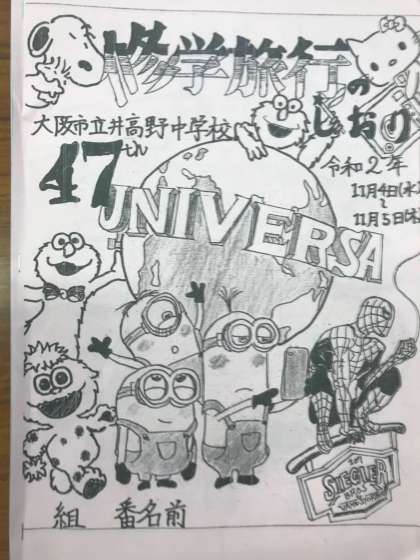 修学旅行の
しおり
大阪市立井高野中学校
47th
令和2年
11月4日(水)
～
11月5日(木)
UNIVERSA
THE
STEGLER
BROS.
組 番名前